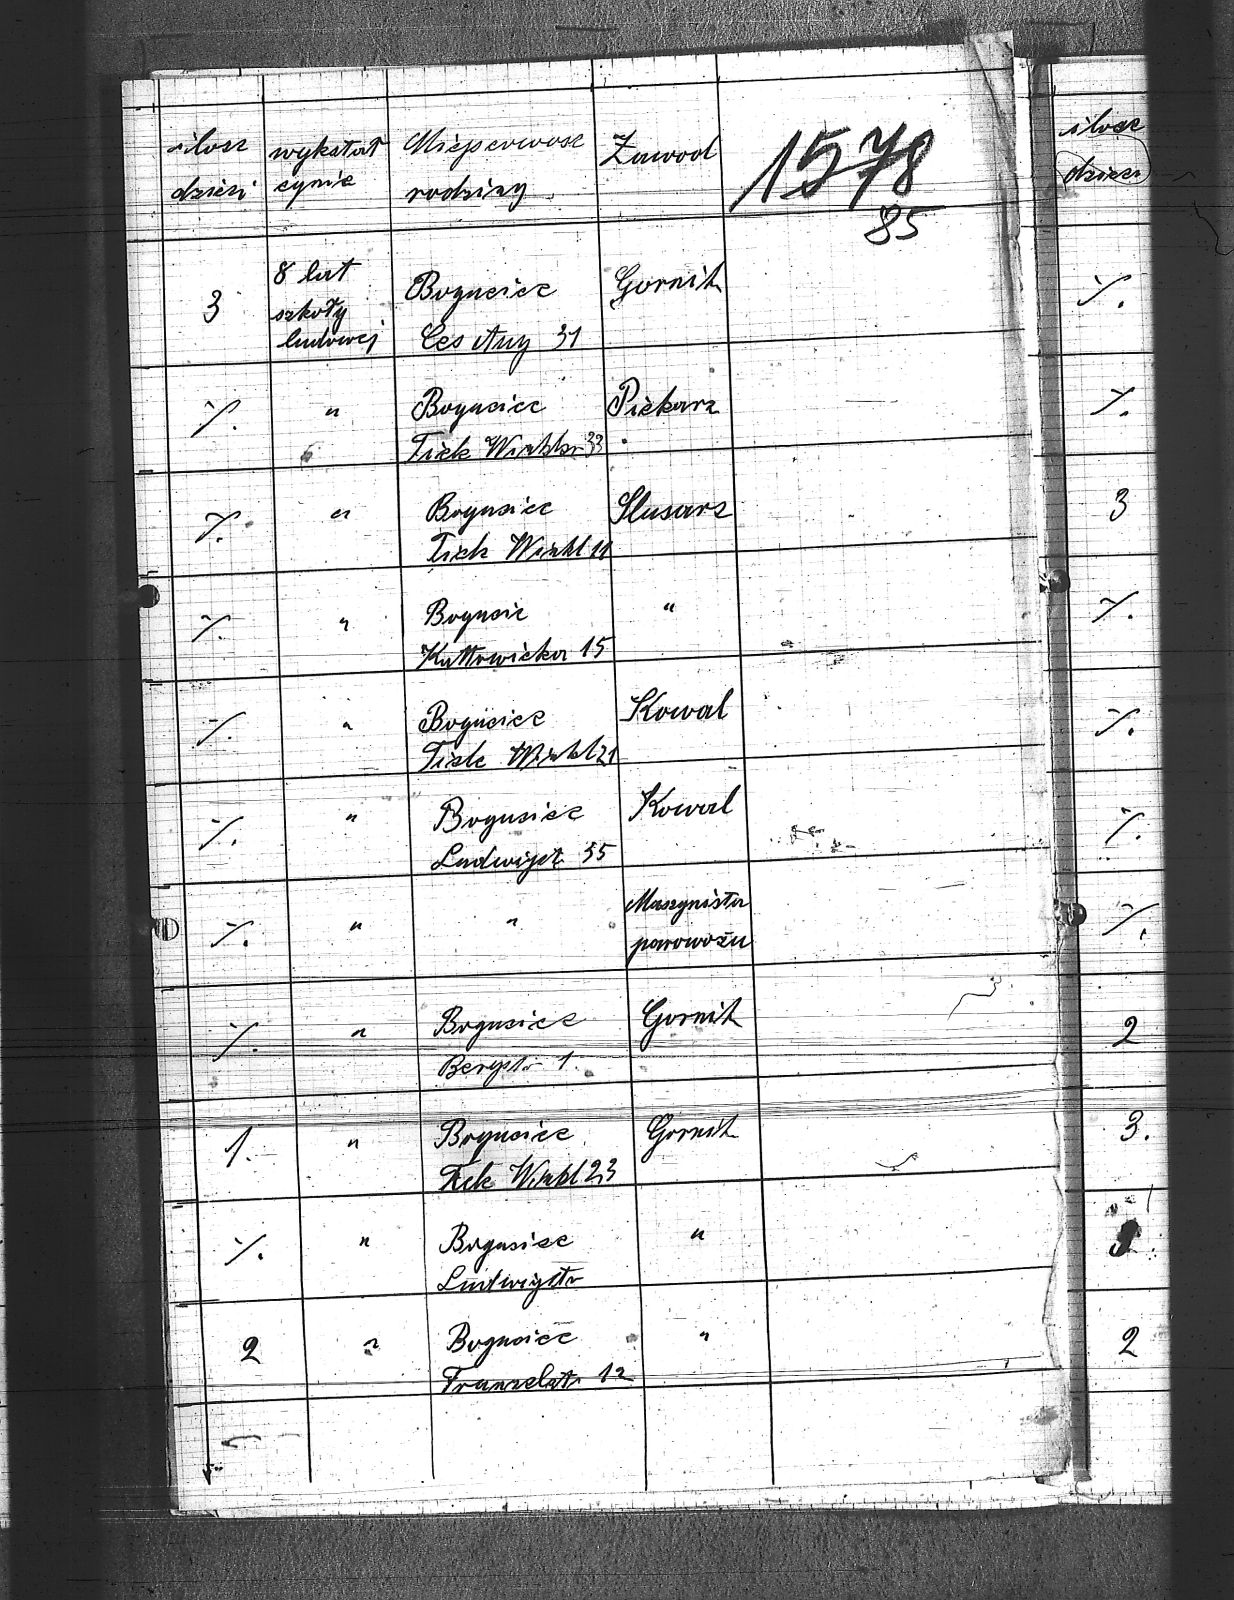 ilosc
dzieci
wykształ
cynie
Miejscowosc
rodziny
Zawod
1578
85
3
8 lat
szkoły
ludowej
Bogucice
31
Gornik
%.
"
Bogucice
33
Piekarz
%.
"
Bogucice
Tiele Winkl 11
Slusarz
%.
"
Bogucic
Kattowicka 15
"
%.
"
Bogucice
Tiele Winkl 21
Kowal
%.
"
Bogucice
Ludwigst. 35
Kowal
%.
"
"
Maszynista
parowozu
%.
"
Bogucice
Bergstr 1.
Gornik
1.
"
Bogucice
Winkl 23
Gornik
%.
"
Bogucice
Ludwigstr
"
2
"
Bogucice
12
"
ilosc
dzieci
%.
%.
3
%.
%.
%.
%.
2
3.
2